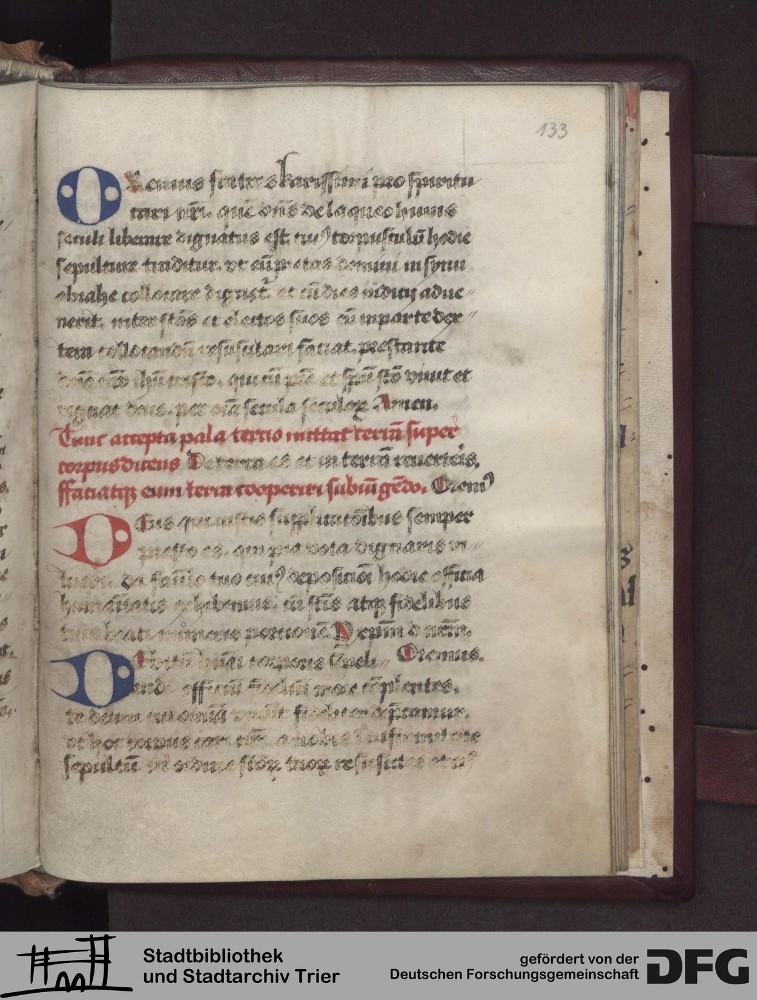 133
Oremus fratres karissimi pro spiritu
cari nr̃i. quē dñs de laqueo huius
seculi liberare dignatus est. cuiꝰ corpusculū hodie
sepulture traditur. vt eū pietas domini in synu
abrahe collocare dignet᷑. et cū dies iudicij adue〃
nerit. inter sc̃os et electos suos eū in parte dex〃
tera collocandū resuscitari faciat. prestante
dño nr̃o ihū cristo. qui cū pr̃e et spū sc̃o viuit et
regnat deus. per oīa secula seculoꝝ Amen.
Tunc accepta pala tercio mittat terrā super
corpus dicens De terra es et in terrā reuerteris.
ffaciatqꝫ eum terra cooperiri subiūgēdo. Oremꝰ
Deus qui iustis supplicacōibus semper
presto es. qui pia vota dignaris in〃
tueri. da famlo tuo cuiꝰ deposicōi hodie officia
humanitatis exhibemus. cū sc̃tis atqꝫ fidelibus
tuis beati muneris porcionē
Oremus.
Debitū hūani corporis sepeli〃
endi officiū fideliū more cōplentes.
te deum cui omīa viuūt fideliter dep̄camur.
vt hoc corpus cari nr̃i a nobis in infirmitate
sepultū in ordine sc̃oꝝ tuoꝝ resuscites et eiꝰ
Stadtbibliothek
und Stadtarchiv Trier
gefördert von der
Deutschen Forschungsgemeinschaft
DFG